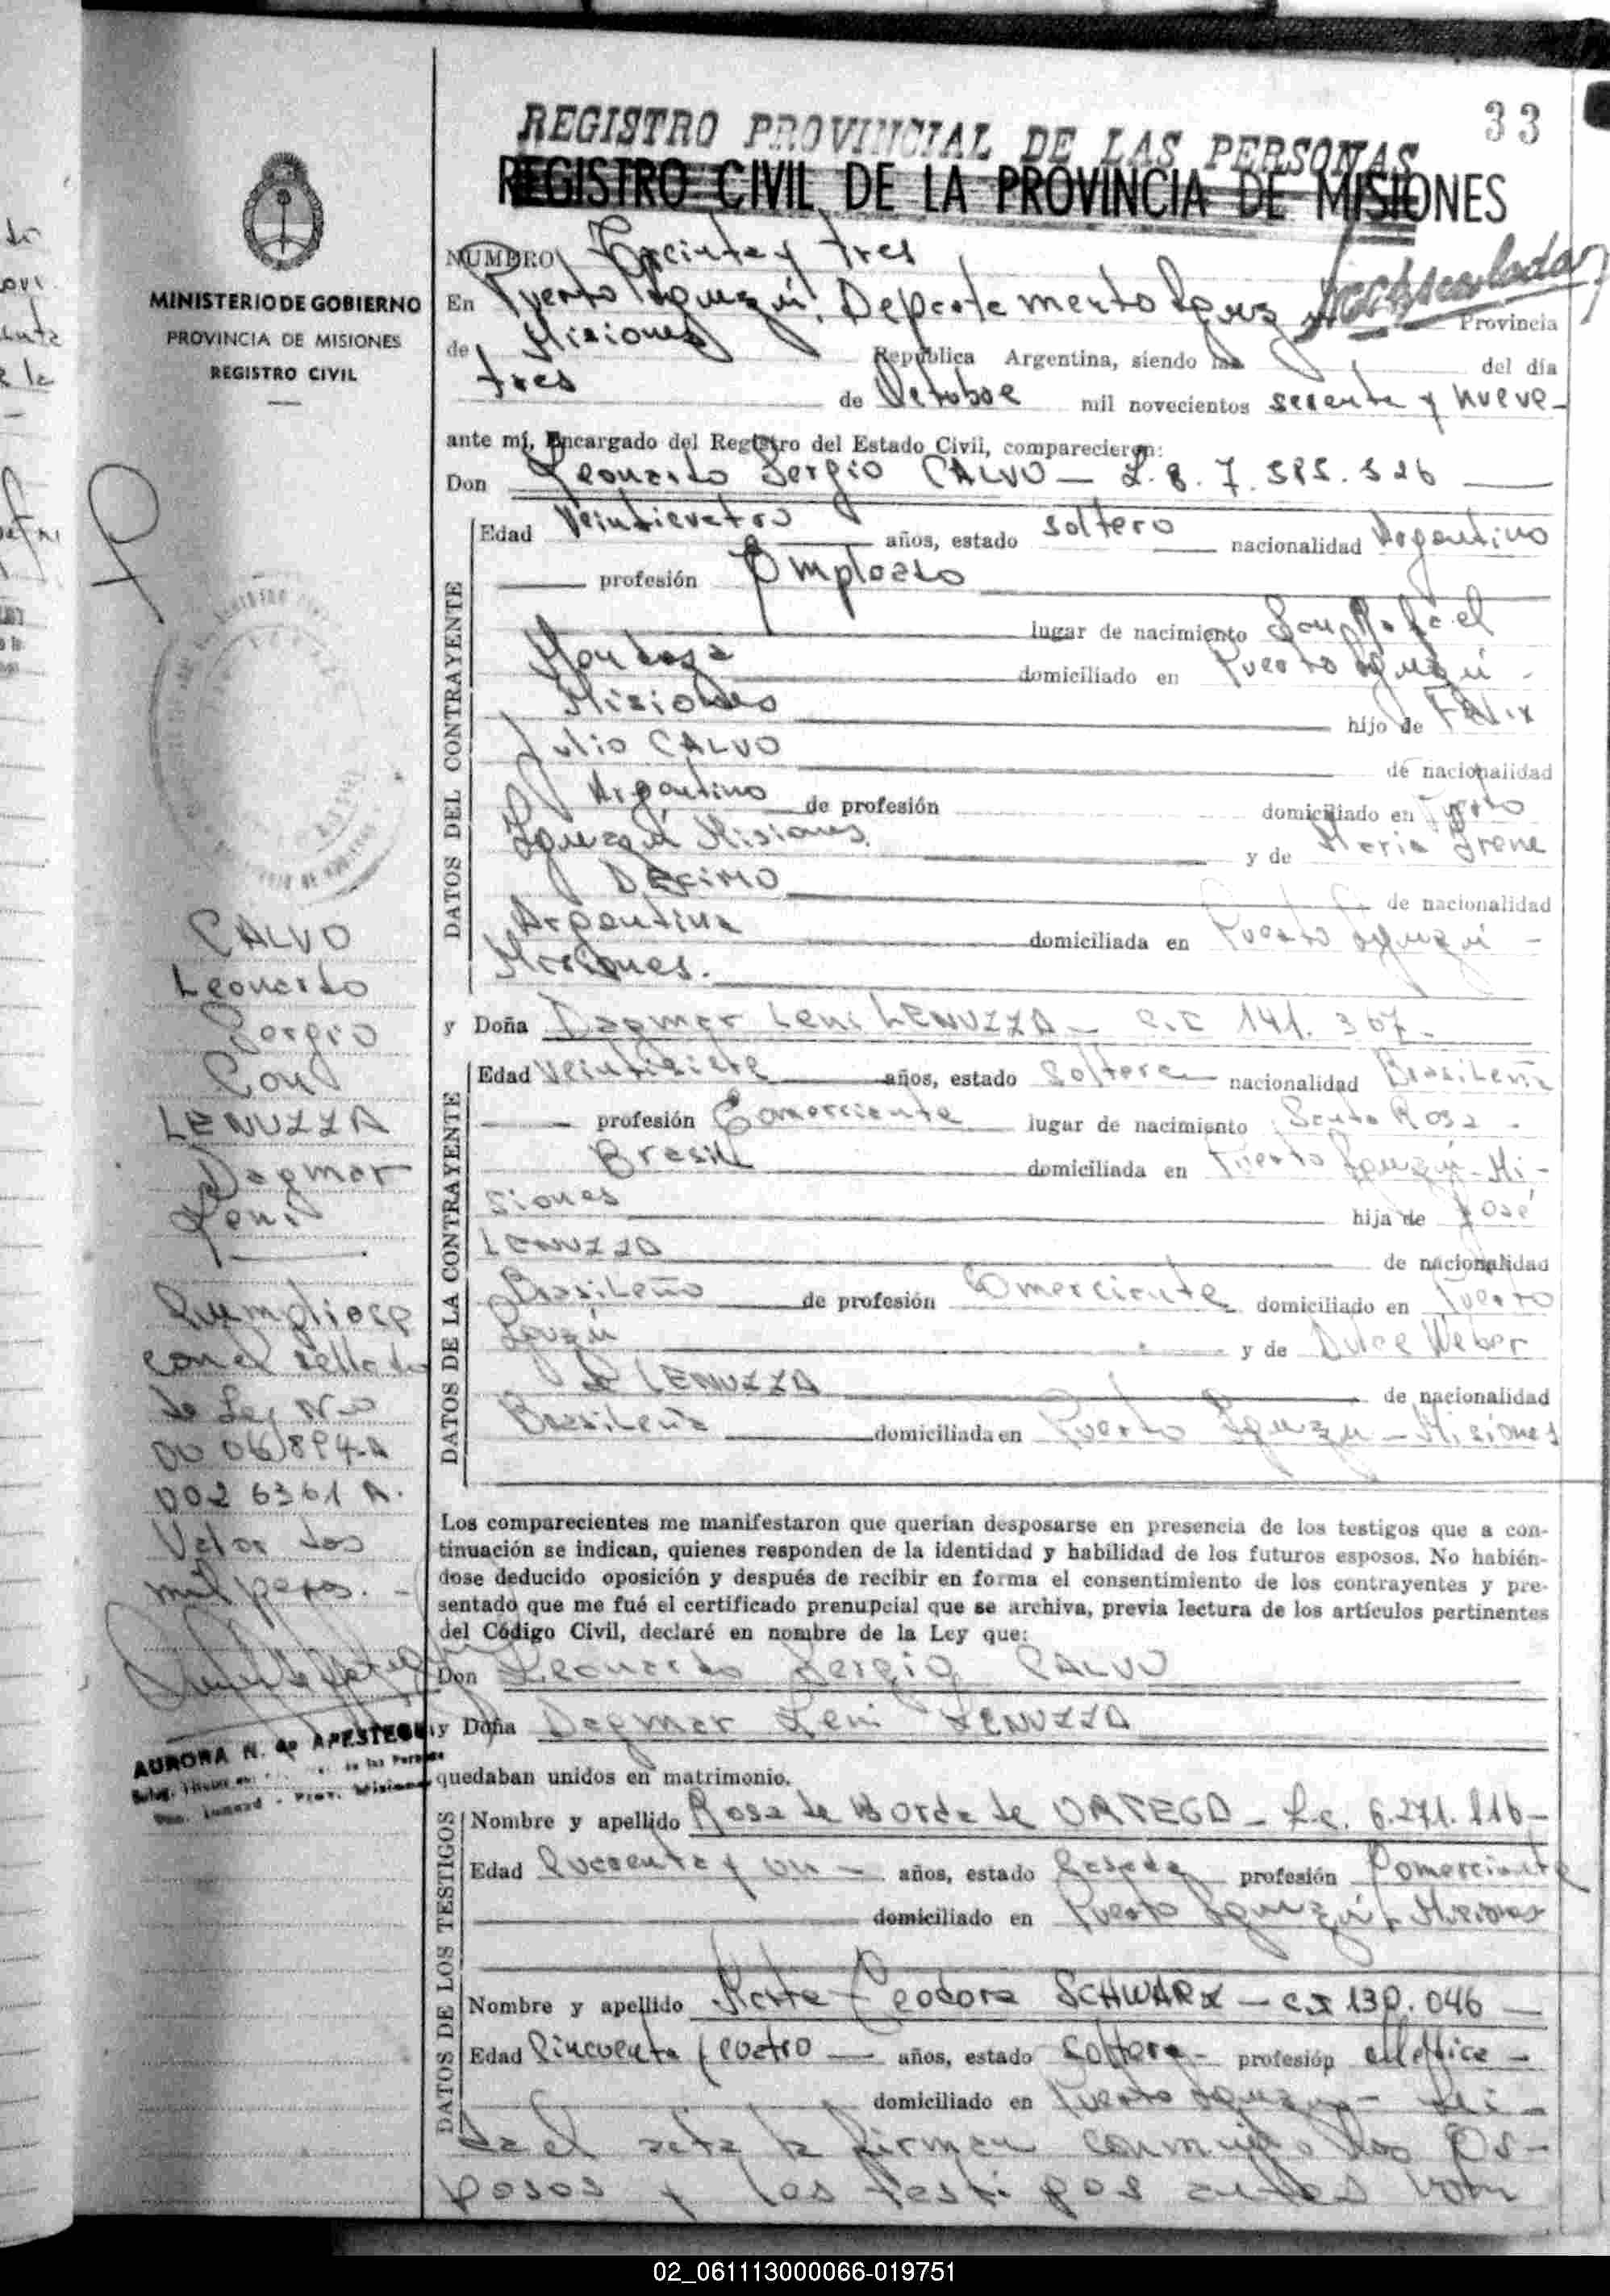 33
REGISTRO PROVINCIAL DE LAS PERSONAS
REGISTRO CIVIL DE LA PROVINCIA DE MISIONES
MINISTERIO DE GOBIERNO
PROVINCIA DE MISIONES
REGISTRO CIVIL
NUMERO Treinta y tres
En Puerto Iguazú, Departamento Iguazú Provincia
de Misiones República Argentina, siendo las del día
tres de Octubre mil novecientos sesenta y nueve-
ante mí, Encargado del Registro del Estado Civil, comparecieron:
Don Leonardo Sergio CALVO - L. E. 7.585.526
DATOS DEL CONTRAYENTE
Edad Veinticuatro años, estado soltero nacionalidad Argentino
profesión Empleado
lugar de nacimiento San Rafael
Mendoza domiciliado en Puerto Iguazú -
Misiones hijo de Félix
Julio CALVO de nacionalidad
Argentino de profesión domiciliado en Puerto
Iguazú Misiones. y de María Irene
DECIMO de nacionalidad
Argentina domiciliada en Puerto Iguazú -
Misiones.
y Doña Dagmar Leni LENUZZA - C.I 141.367-
DATOS DE LA CONTRAYENTE
Edad Veintisiete años, estado Soltera nacionalidad Brasileña
profesión Comerciante lugar de nacimiento Santa Rosa -
Brasil domiciliada en Puerto Iguazú - Mi-
siones hija de José
LENUZZA de nacionalidad
Brasileño de profesión Comerciante domiciliado en Puerto
Iguazú y de Dulce Weber
de LENUZZA de nacionalidad
Brasileña domiciliada en Puerto Iguazú - Misiones
Los comparecientes me manifestaron que querían desposarse en presencia de los testigos que a con-
tinuación se indican, quienes responden de la identidad y habilidad de los futuros esposos. No habién-
dose deducido oposición y después de recibir en forma el consentimiento de los contrayentes y pre-
sentado que me fué el certificado prenupcial que se archiva, previa lectura de los artículos pertinentes
del Código Civil, declaré en nombre de la Ley que:
Don Leonardo Sergio CALVO
y Doña Dagmar Leni LENUZZA
quedaban unidos en matrimonio.
DATOS DE LOS TESTIGOS
Nombre y apellido Rosa de Borda de ORTEGA - L.C. 6.271.116-
Edad Cuarenta y un - años, estado Casada profesión Comerciante
domiciliado en Puerto Iguazú, Misiones
Nombre y apellido Teodora SCHWARZ - C.I 130.046
Edad Cincuenta y cuatro años, estado Soltera - profesión
domiciliado en Puerto Iguazú - Lei-
da el acta la firman conmigo los Es-
posos y los testigos antes nom
CALVO
Leonardo
Sergio
Con
LENUZZA
Dagmar
Leni
Cumpliose
con el sellado
de Ley Nro
00 06894-A
0026361 A.
Valor dos
mil pesos. -
AURORA N. de APESTEGUI
02_061113000066-019751